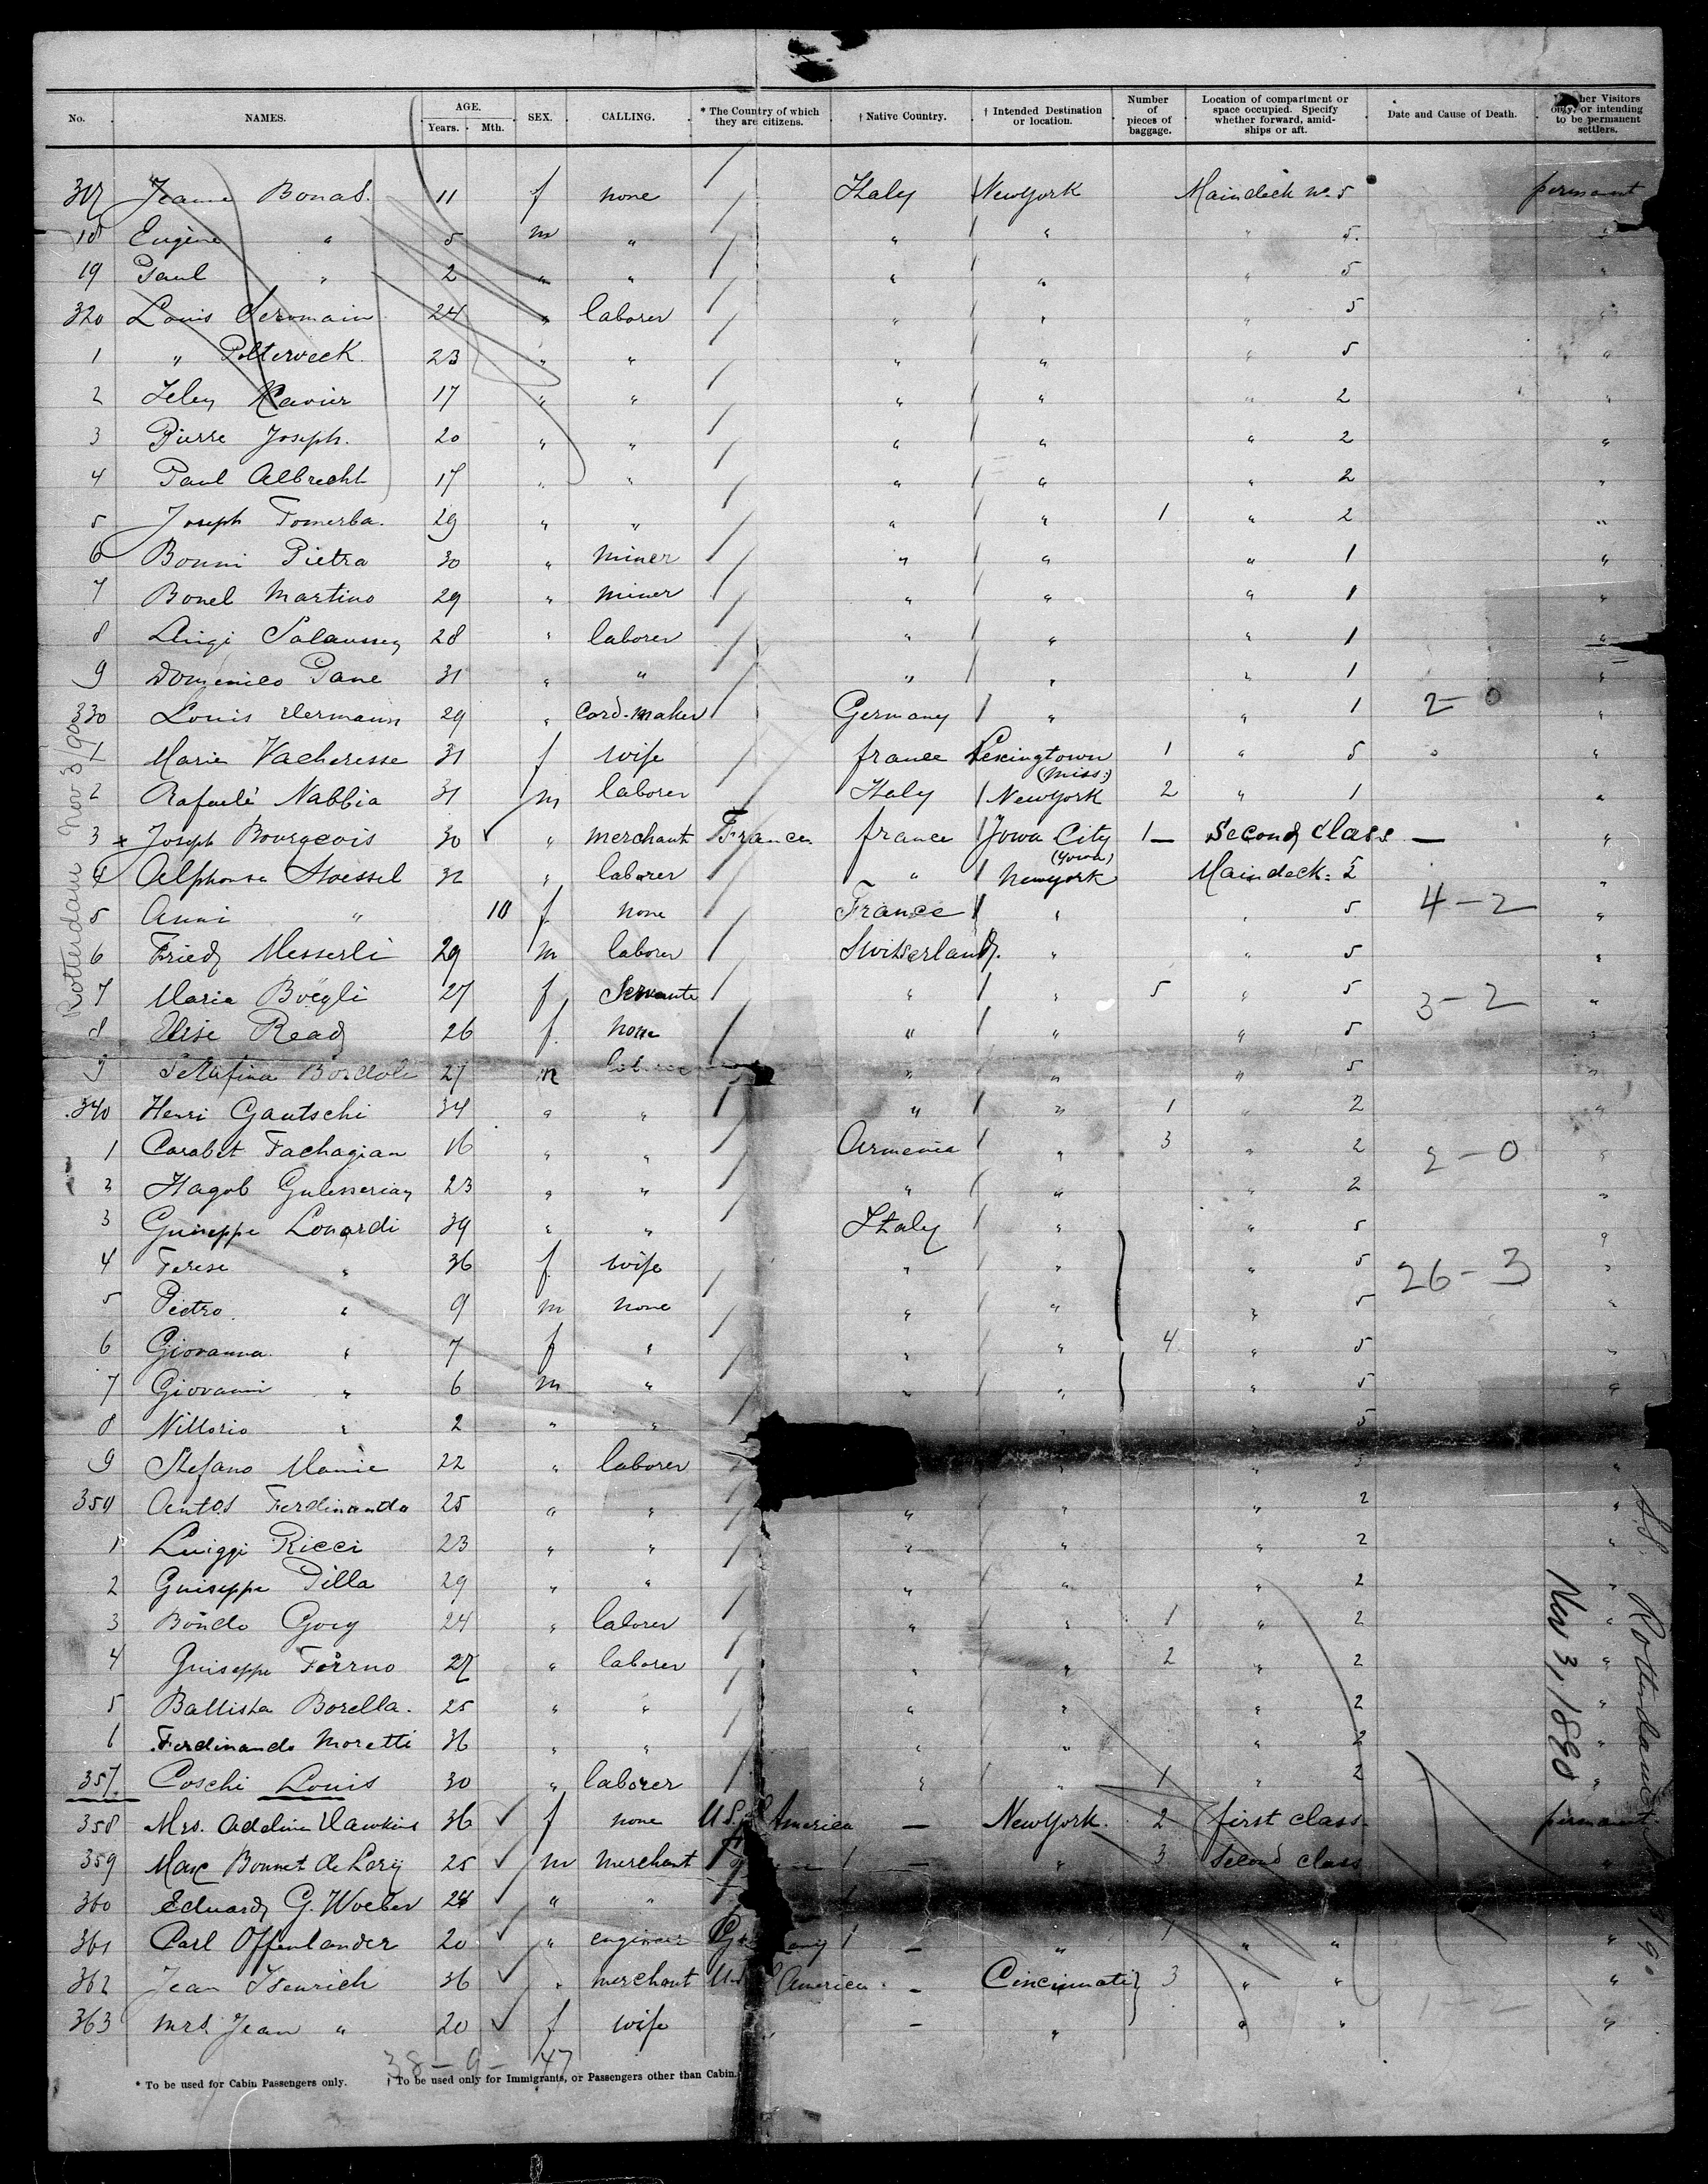 No. NAMES. AGE. Years. Mth. SEX. CALLING. * The Country of which they are citizens. † Native Country. † Intended Destination or location. Number of pieces of baggage. Location of compartment or space occupied. Specify whether forward, amid-ships or aft. Date and Cause of Death. her Visitors only, or intending to be permanent settlers.
317 Jeanne Bonas. 11 f none Italy New York Maindeck No. 5 permanent
18 Eugène " 5 m " " " " 5. "
19 Paul " 2 " " " " " 5 "
320 Louis 24 " laborer " " " 5 "
1 " Polterveck 23 " " " " " 5 "
2 Xavier 17 " " " " " 2 "
3 Pierre Joseph. 20 " " " " " 2 "
4 Paul Albrecht 17 " " " " " 2 "
5 Joseph Tomerba. 29 " " " " 1 " 2 "
6 Bonni Pietra 30 " miner " " " 1 "
7 Bonel Martino 29 " miner " " " 1 "
8 Luigi 28 " laborer " " " 1 "
9 Domenico Pane 31 " " " " " 1 "
330 Louis Hermann 29 " Card-maker Germany " " 1 2-0 "
1 Marie Vacheresse 31 f wife france Lexingtown (Miss.) 1 " 5 "
2 Rafaele Nabbia 31 m laborer Italy New York 2 " 1 "
3 x Joseph Bourgeois 30 ✓ " merchant France france Iowa City (Iowa) 1 — Second Class — "
4 Alphonse Stoessel 32 " laborer " New york Maindeck "
5 Anni " 10 f none France " " 5 4-2 "
6 Fried Messerli 29 m laborer Switserland " " 5 "
7 Maria Boegli 27 f Servante " " 5 " 5 3-2 "
8 Elise Read 26 f none " " " 5 "
9 Serafina Bordoli 27 m laborer " " " 5 "
340 Henri Gautschi 34 " " " " 1 " 2 "
1 Carabet Fachagian 16 " " Armenia " 3 " 2 2-0 "
2 Hagob Gulesserian 23 " " " " " 2 "
3 Guiseppe Lonardi 39 " " Italy " " 5 "
4 Terese " 36 f wife " " " 5 26-3 "
5 Pietro. " 9 m none " " " 5 "
6 Giovanna " 7 f " " " 4 " 5 "
7 Giovanni " 6 m " " " " 5 "
8 Vittorio " 2 " " " 5
9 Stefano 22 " laborer " " "
350 Antos Ferdinando 25 " " " " " 2 "
1 Luiggi Ricci 23 " " " " " 2 "
2 Guiseppe Pilla 29 " " " " " 2 "
3 Bondo Gory 24 " laborer " " 1 " 2 "
4 Guiseppe Forrno 27 " laborer " " 2 " 2 "
5 Battista Borella. 25 " " " " " 2 "
6 Ferdinando Moretti 36 " " " " " 2 "
357. Coschi Louis 30 " laborer " " 1 " 2 "
358 Mrs. Adeline Hawkins 36 ✓ f none U.S. America — New York. 2 first class. permanent
359 Max Bonnet de Lery 25 ✓ m merchant — " 3 Second class "
360 Eduard G. Woeber 24 ✓ " "
361 Carl Offenlander 20 ✓ " engineer Germany — " 1 " " "
362 Jean Isenrich 36 ✓ " merchant America — Cincinnati 3 " " "
363 Mrs. Jean " 20 ✓ f wife " — " " " "
1-2
38-9-47
* To be used for Cabin Passengers only. † To be used only for Immigrants, or Passengers other than Cabin.
Rotterdam Nov 3/90
S.S. Rotterdam
Nov 3, 1890